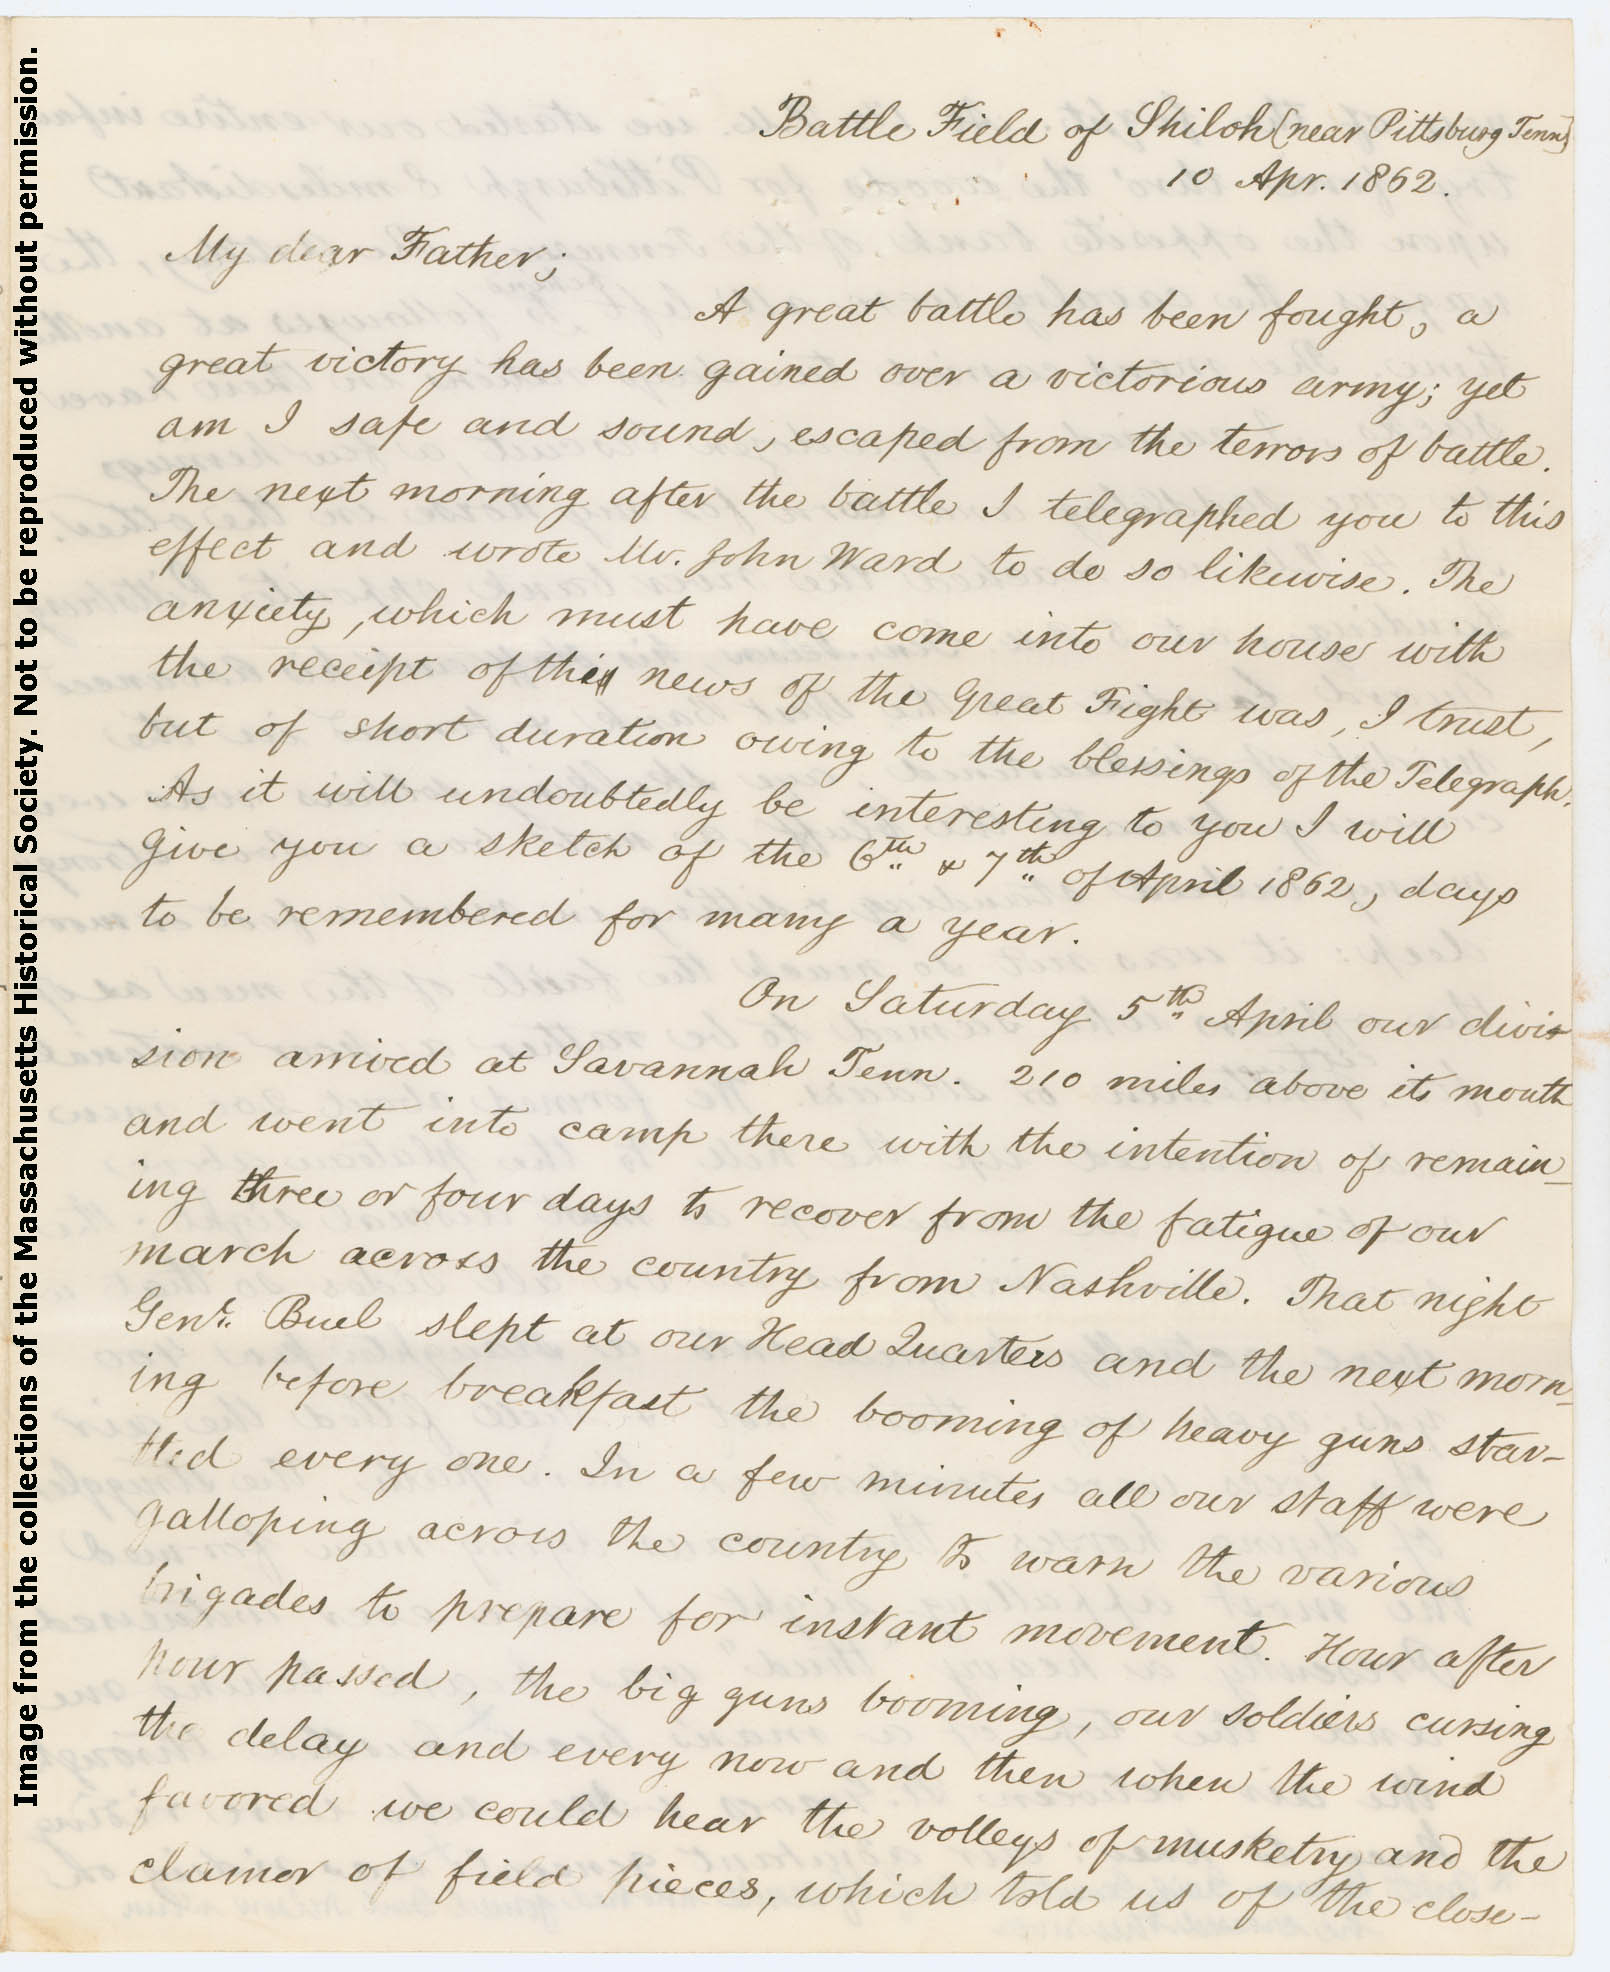 Image from the collections of the Massachusetts Historical Society. Not to be reproduced without permission.
Battle Field of Shiloh [near Pittsburg Tenn]
10 Apr. 1862.
My dear Father;
A great battle has been fought, a
great victory has been gained over a victorious army; yet
am I safe and sound, escaped from the terrors of battle.
The next morning after the battle I telegraphed you to this
effect and wrote Mr. John Ward to do so likewise. The
anxiety, which must have come into our house with
the receipt of the news of the Great Fight was, I trust,
but of short duration owing to the blessings of the Telegraph.
As it will undoubtedly be interesting to you I will
give you a sketch of the 6th & 7th of April 1862, days
to be remembered for many a year.
On Saturday 5th April our divi-
sion arrived at Savannah Tenn. 210 miles above its mouth
and went into camp there with the intention of remain-
ing three or four days to recover from the fatigue of our
march across the country from Nashville. That night
Genl. Buel slept at our Head Quarters and the next morn-
ing before breakfast the booming of heavy guns star-
tled every one. In a few minutes all our staff were
galloping across the country to warn the various
brigades to prepare for instant movement. Hour after
hour passed, the big guns booming, our soldiers cursing
the delay and every now and then when the wind
favored we could hear the volleys of musketry and the
clamor of field pieces, which told us of the close-